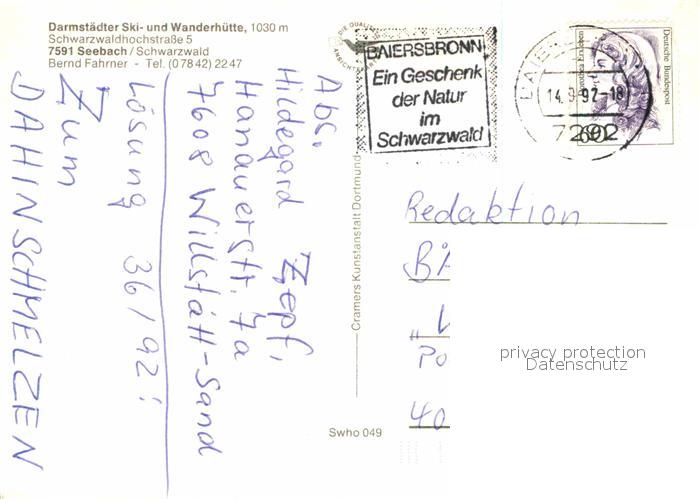 Darmstädter Ski- und Wanderhütte, 1030 m
Schwarzwaldhochstraße 5
7591 Seebach / Schwarzwald
Bernd Fahrner - Tel. (0 78 42) 22 47
Abs.
Hildegard Zepf,
Hanauerstr. 7a
7608 Willstätt-Sand
Lösung 36/92:
Zum
DAHINSCHMELZEN
Cramers Kunstanstalt Dortmund
Swho 049
BAIERSBRONN
Ein Geschenk
der Natur
im
Schwarzwald
14.9.92-18
7292
Deutsche Bundespost
60
Redaktion
Po
40
privacy protection
Datenschutz